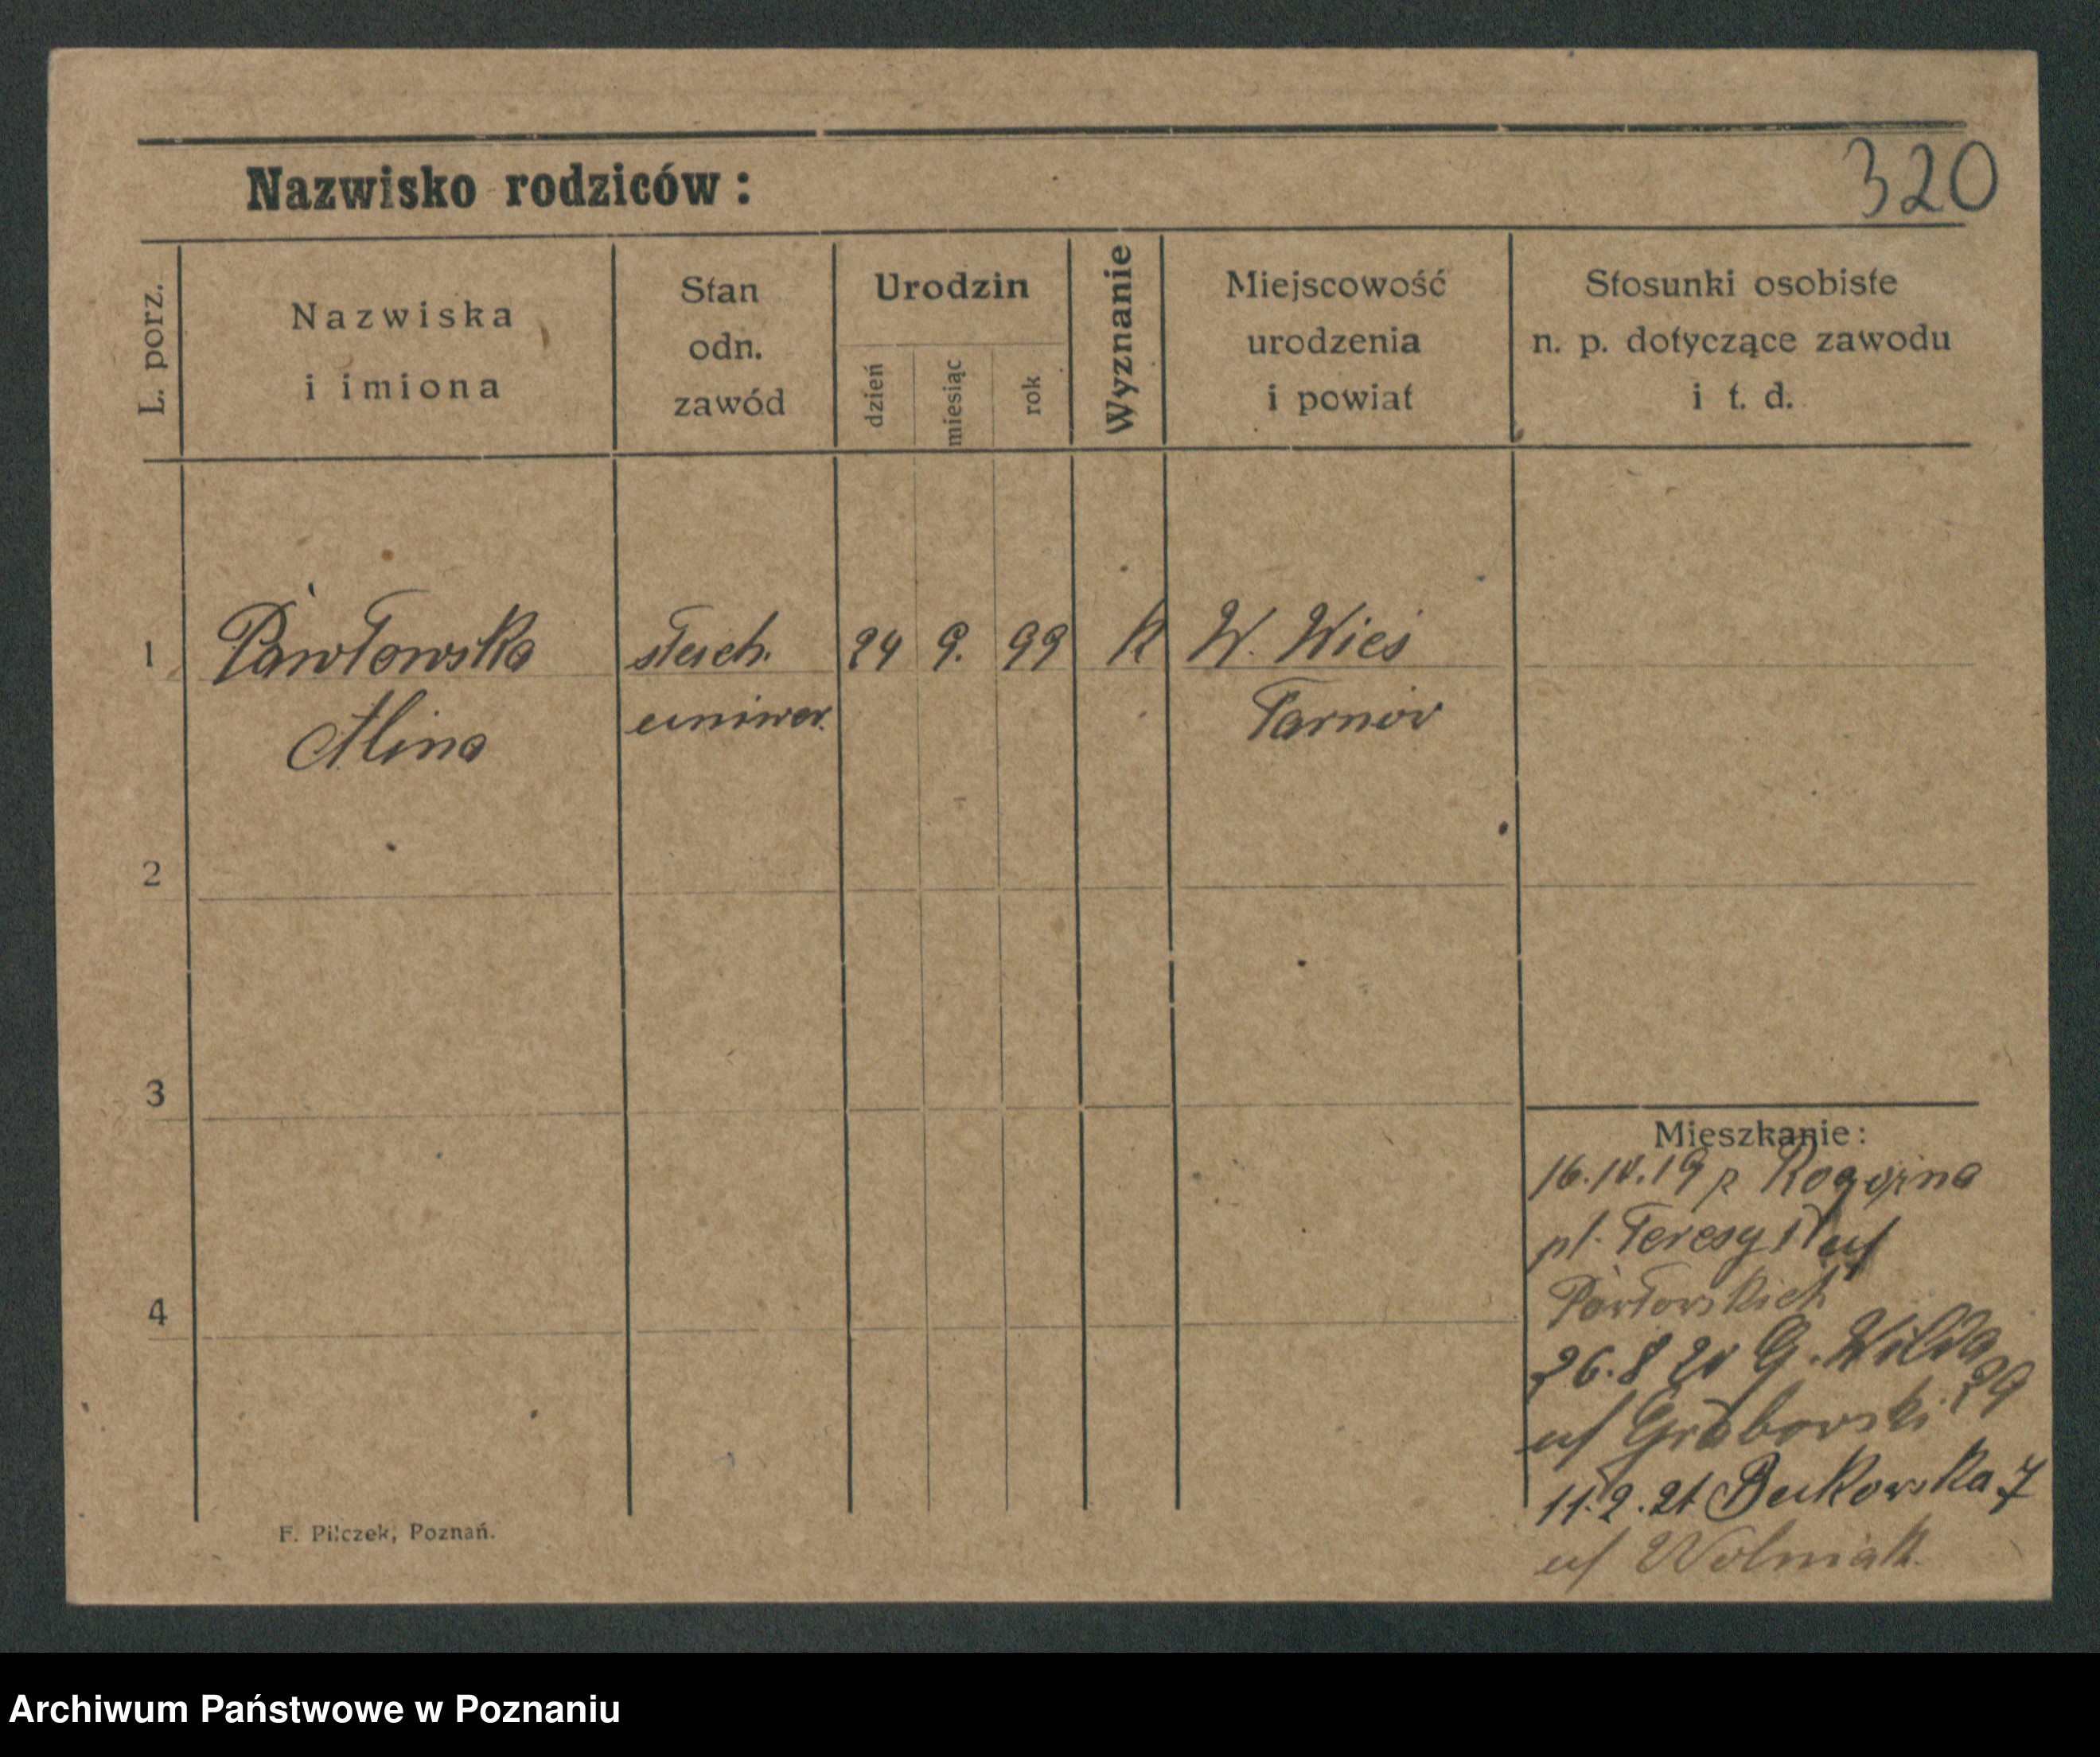 320
Nazwisko rodziców:
L. porz.
Nazwiska
i imiona
Stan
odn.
zawód
Urodzin
dzień
miesiąc
rok
Wyznanie
Miejscowość
urodzenia
i powiat
Stosunki osobiste
n. p. dotyczące zawodu
i t. d.
1 Pawłowska słuch. 24 9. 99 K W. Wieś
Alina uniwer. Tarnów
2
3
4
Mieszkanie:
16.10.19 z Rogoźna
pl. Teresy
26.8 20 G. Wilda 29
Grabowski
11.2.21 Bukowska 7
Wolniak
F. Pilczek, Poznań.
Archiwum Państwowe w Poznaniu